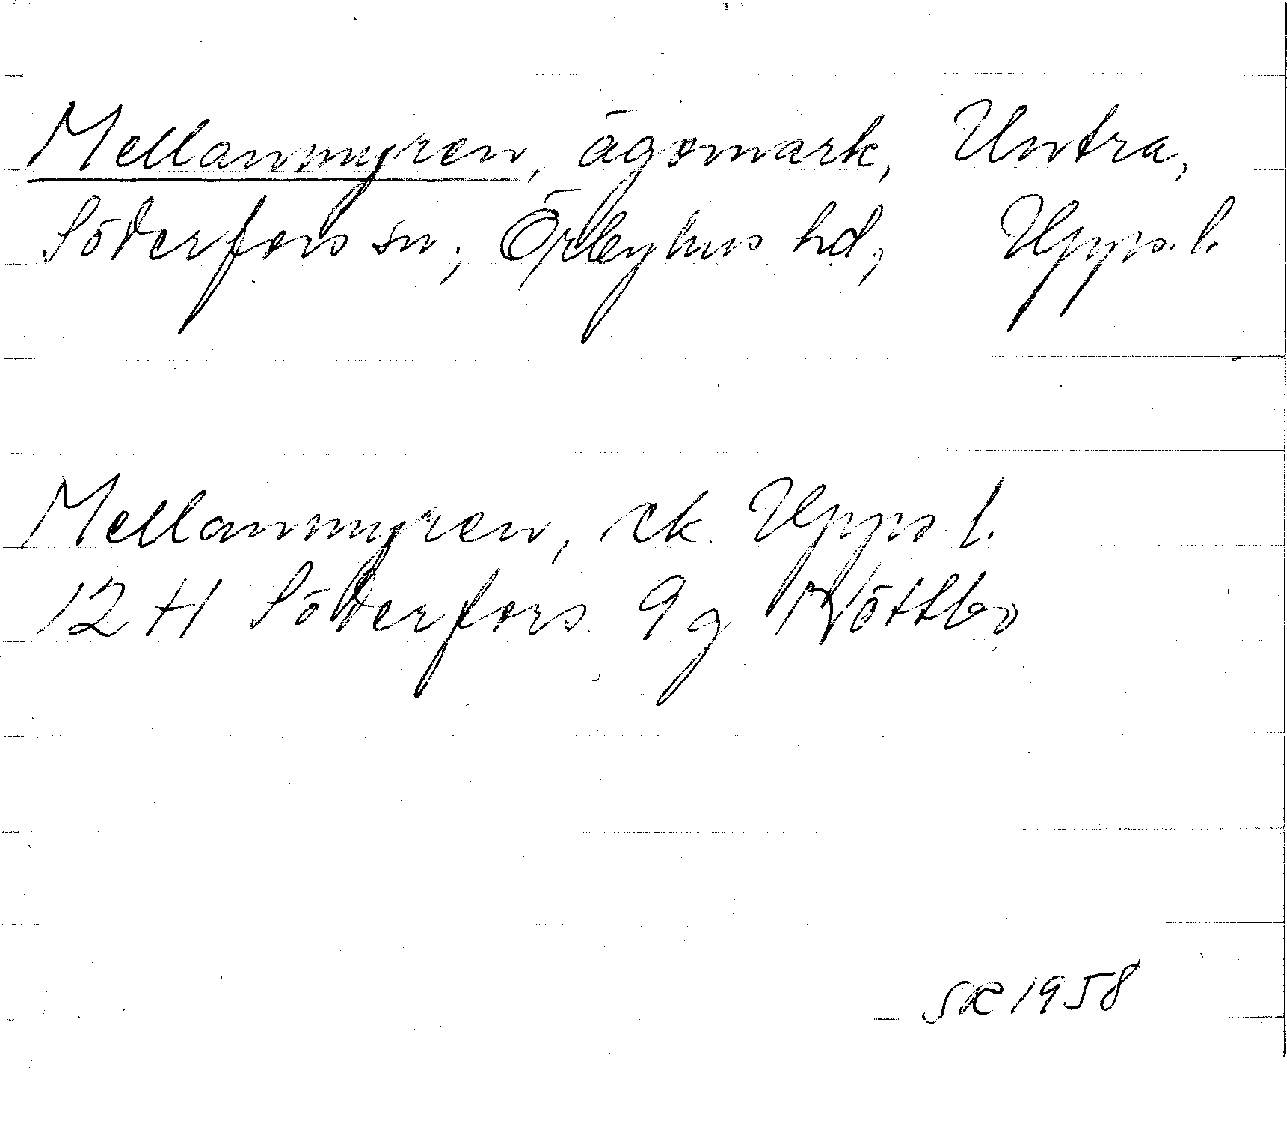 Mellanmyren, ägomark, Untra,
Söderfors sn, Örbyhus hd, Upps. l.
Mellanmyren, ek. Upps l.
12 H Söderfors 9 g Nöttbo
SR 1958